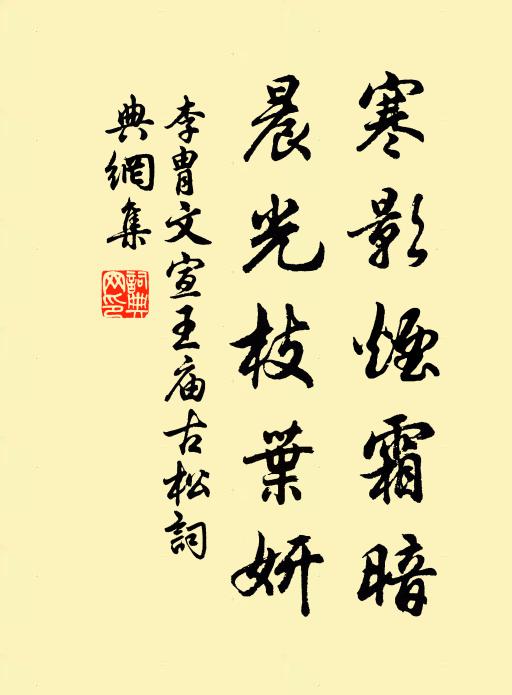 寒影煙霜暗
晨光枝葉妍
李胄文宣王庙古松詞
典網集
詞典網印